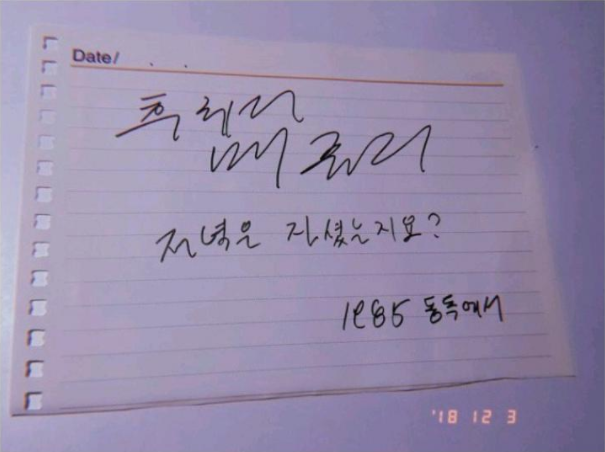 Date/
후레디
머큐리
저녁은 자셨는지요?
1985 동독에서
'18 12 3